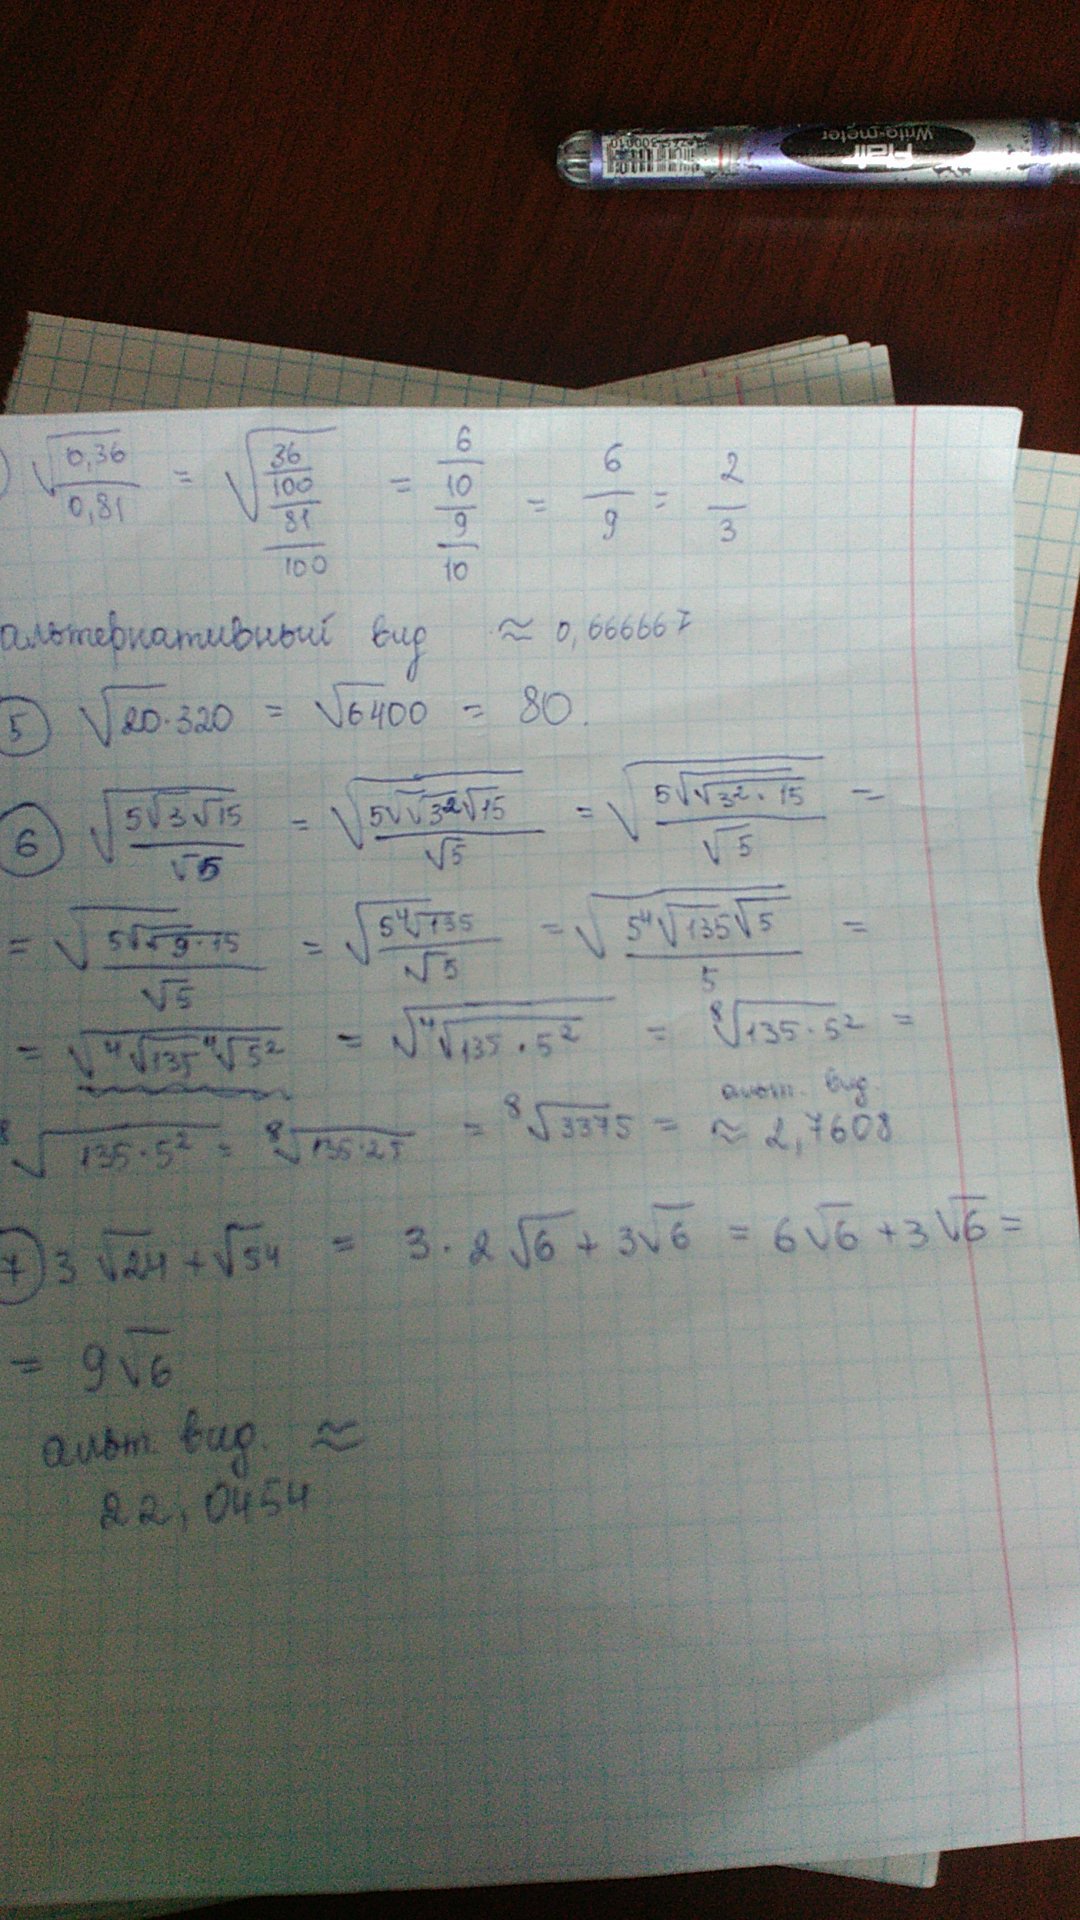 Flair
Write-meter
) √(0,36/0,81) = √((36/100)/(81/100)) = (6/10)/(9/10) = 6/9 = 2/3
альтернативный вид ≈ 0,666667
5 √20·320 = √6400 = 80.
6 √(5√3√15/√5) = √(5√√3²√15/√5) = √(5√√3²·15/√5) =
= √(5√√9·15/√5) = √(5⁴√135/√5) = √(5⁴√135√5/5) =
= √(⁴√135⁴√5²) = √(⁴√135·5²) = ⁸√135·5² =
альт. вид.
⁸√135·5² = ⁸√135·25 = ⁸√3375 = ≈ 2,7608
7 3√24 + √54 = 3·2√6 + 3√6 = 6√6 + 3√6 =
= 9√6
альт. вид. ≈
22,0454